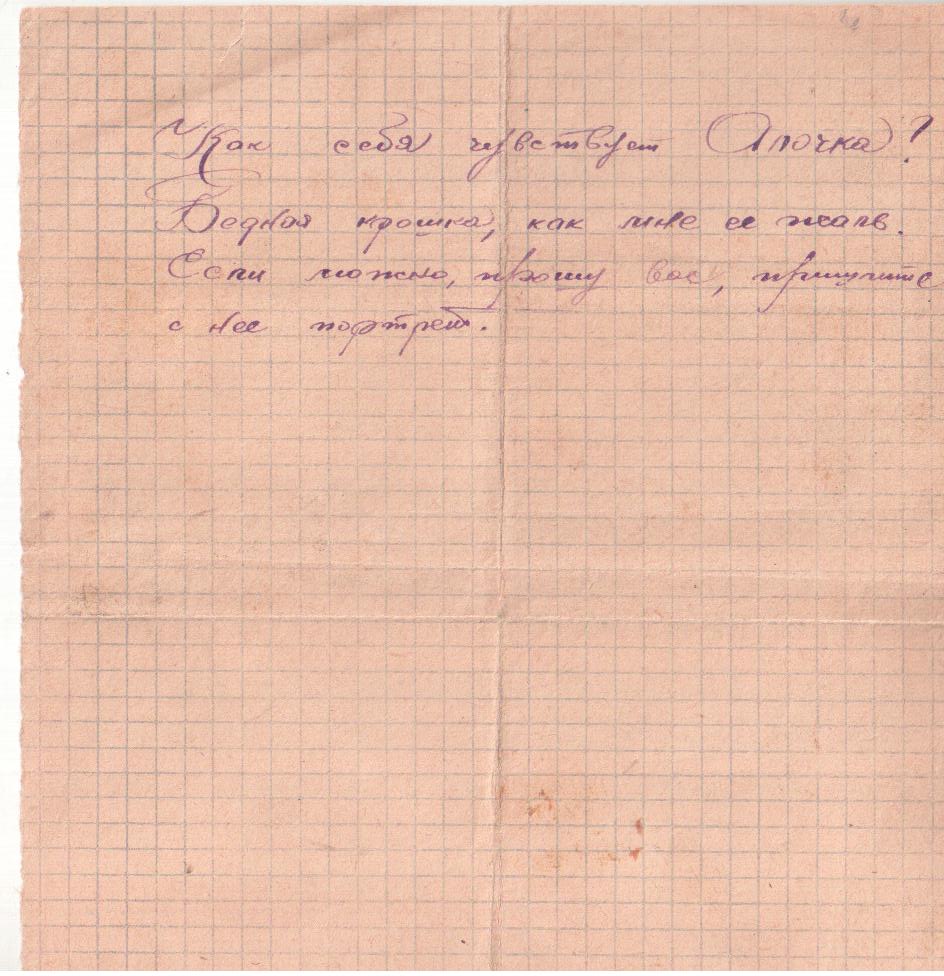 Как себя чувствует Алочка?
Бедная крошка, как мне ее жаль.
Если можно, прошу вас, пришлите
с нее портрет.